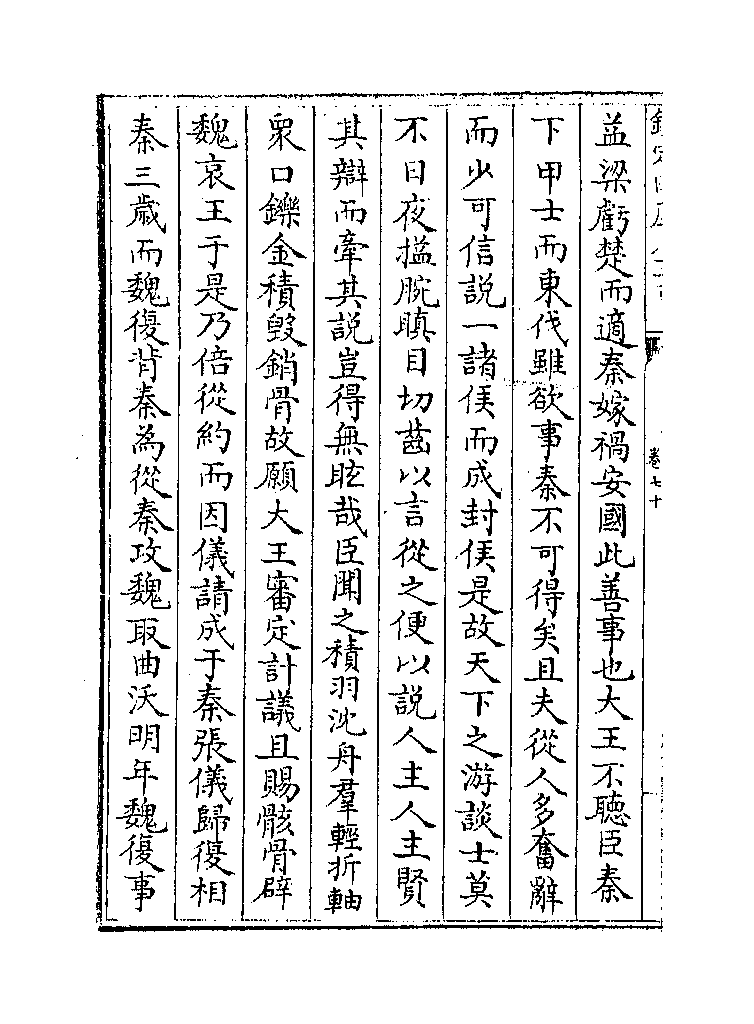 卷七十
益梁虧楚而適秦嫁禍安國此善事也大王不聽臣秦
下甲士而東伐雖欲事秦不可得矣且夫從人多奮辭
而少可信説一諸侯而成封侯是故天下之游談士莫
不日夜搤腕瞋目切齒以言從之便以説人主人主賢
其辯而牽其説豈得無眩哉臣聞之積羽沈舟羣輕折軸
衆口鑠金積毁銷骨故願大王審定計議且賜骸骨辟
魏哀王于是乃倍從約而因儀請成于秦張儀歸復相
秦三歲而魏復背秦為從秦攻魏取曲沃明年魏復事